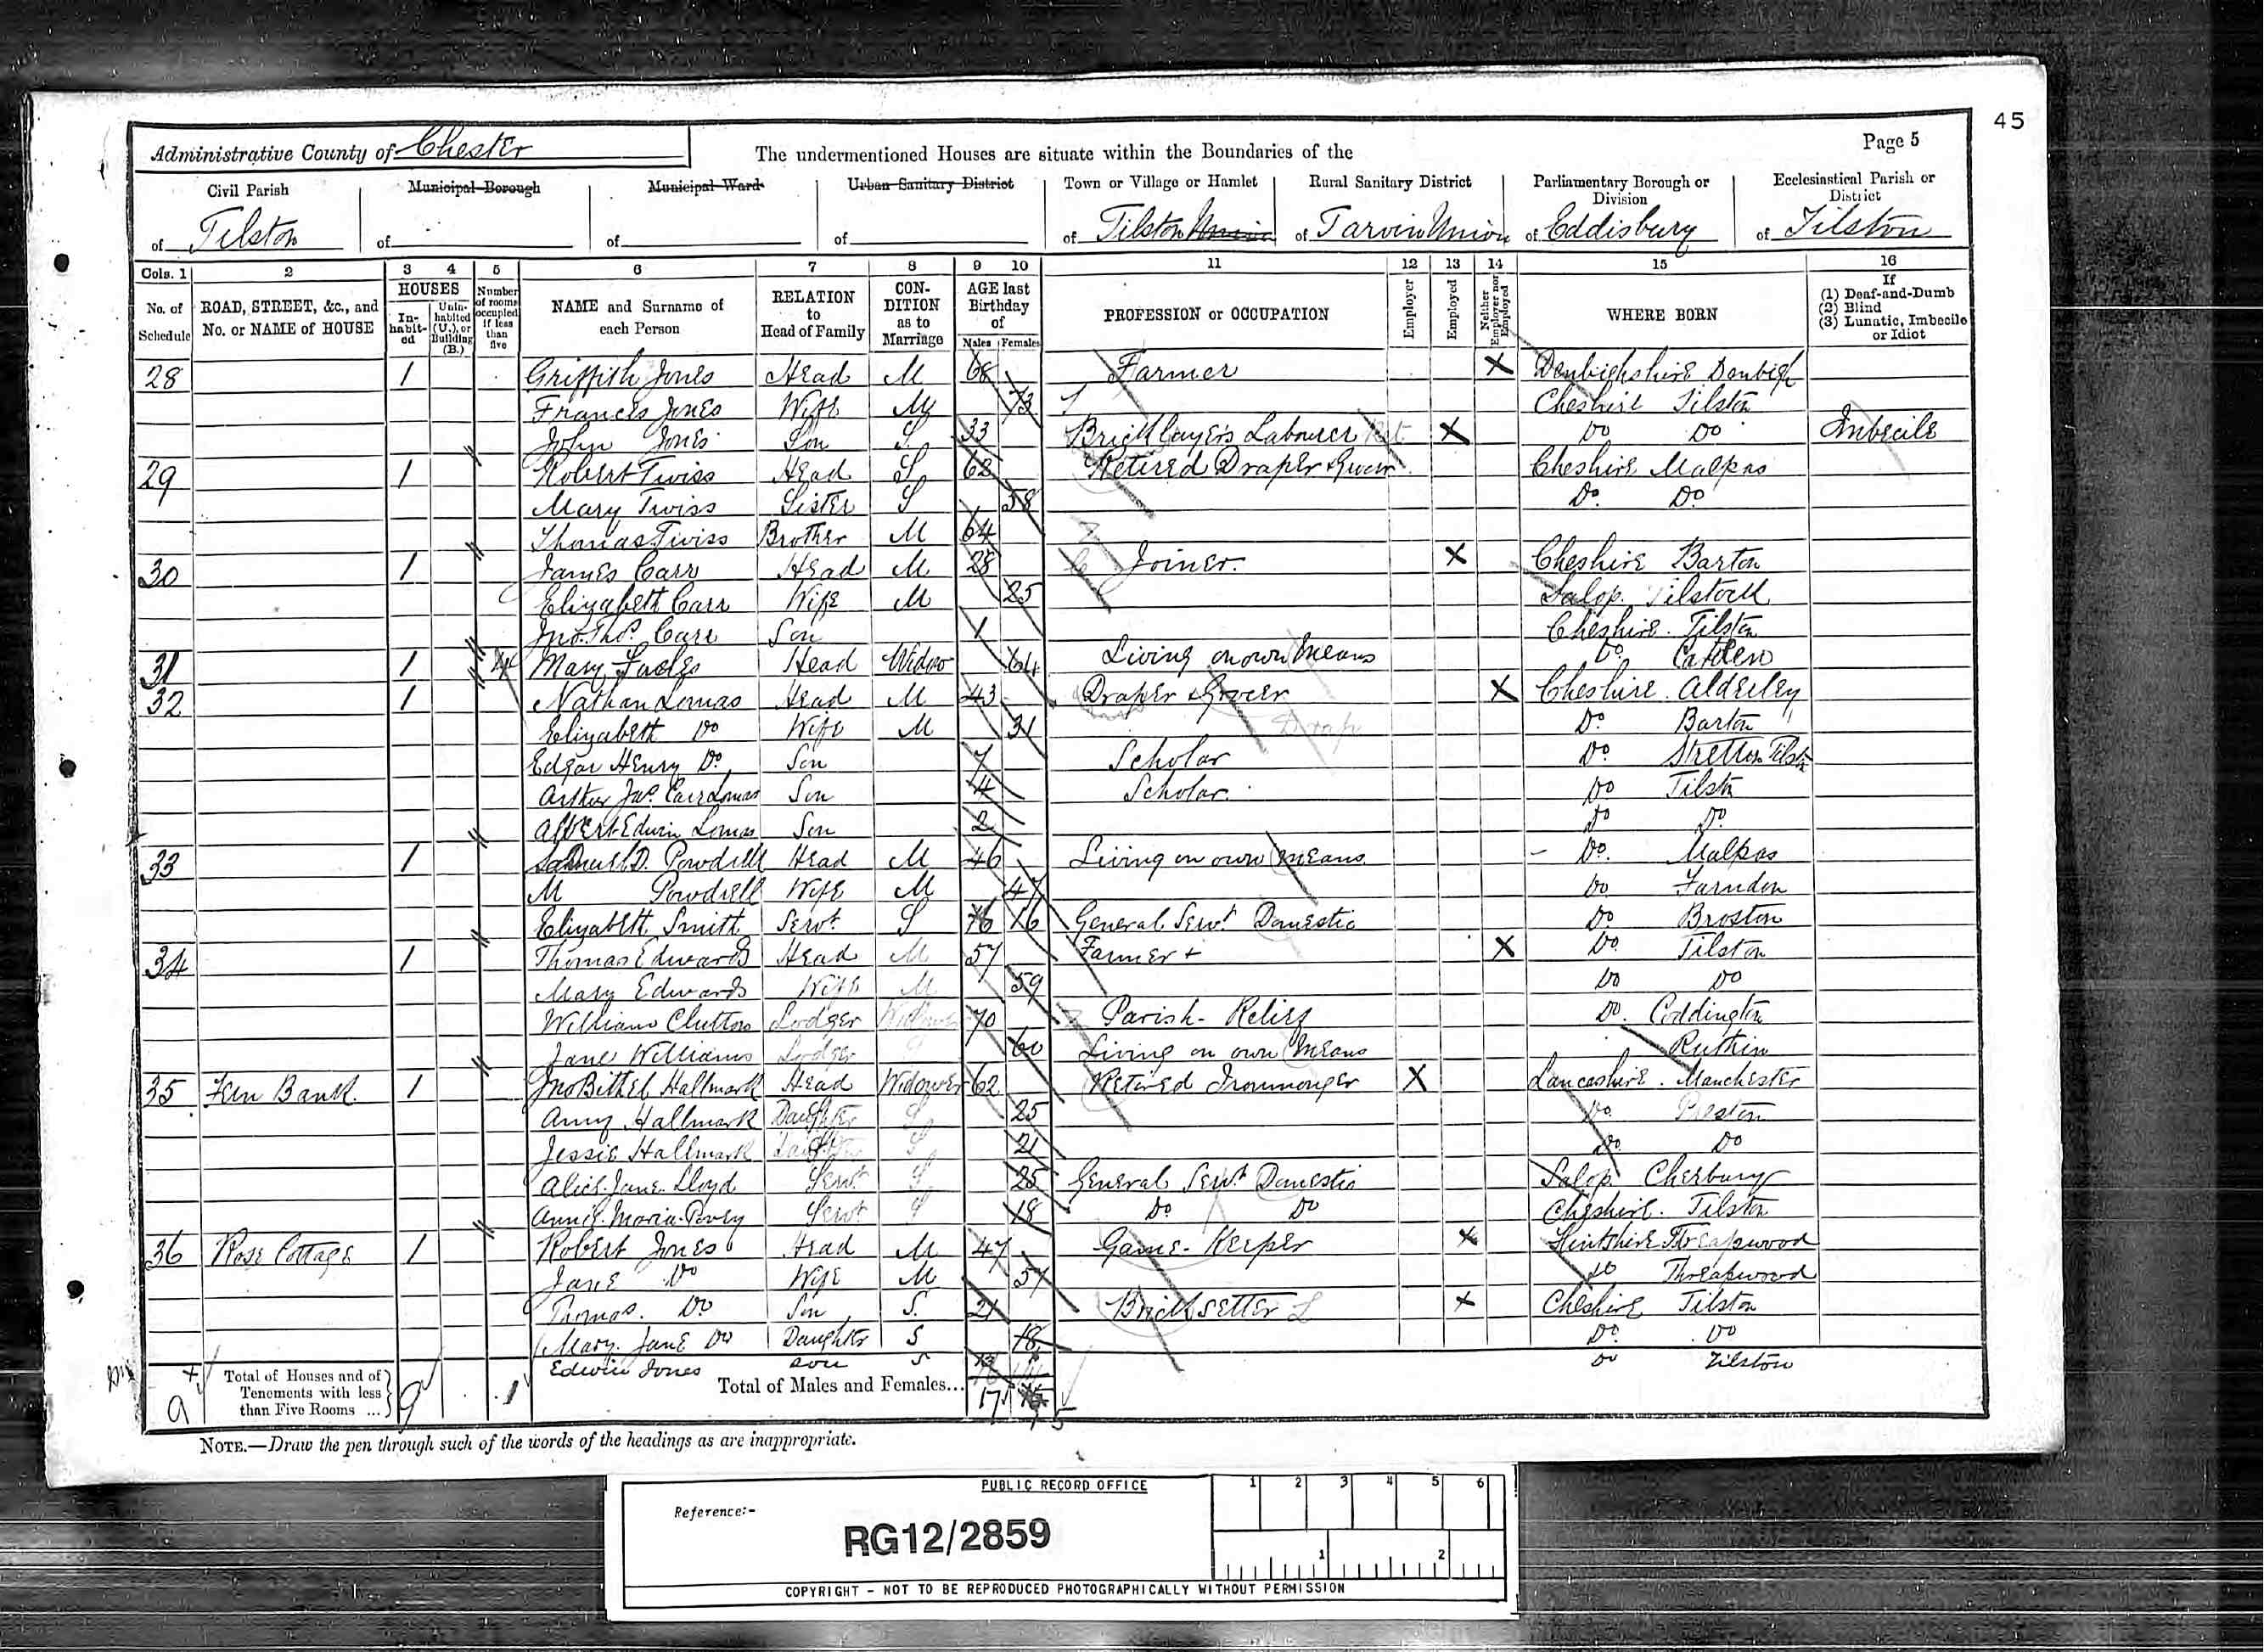 45
Administrative County of Chester The undermentioned Houses are situate within the Boundaries of the Page 5
Civil Parish of Tilston
Municipal Borough of
Municipal Ward of
Urban Sanitary District of
Town or Village or Hamlet of Tilston Union
Rural Sanitary District of Tarvin Union
Parliamentary Borough or Division of Eddisbury
Ecclesiastical Parish or District of Tilston
Cols. 1 2 3 4 5 6 7 8 9 10 11 12 13 14 15 16
No. of Schedule
ROAD, STREET, &c., and No. or NAME of HOUSE
HOUSES
In-habit-ed
Unin-habited (U.), or Building (B.)
Number of rooms occupied if less than five
NAME and Surname of each Person
RELATION to Head of Family
CON-DITION as to Marriage
AGE last Birthday of
Males Females
PROFESSION or OCCUPATION
Employer
Employed
Neither Employer nor Employed
WHERE BORN
If (1) Deaf-and-Dumb (2) Blind (3) Lunatic, Imbecile or Idiot
28 1 Griffith Jones Head M 68 Farmer X Denbighshire Denbigh
Frances Jones Wife M 73 Cheshire Tilston
John Jones Son S 33 Bricklayer's Labourer X Do Do Imbecile
29 1 Robert Twiss Head S 62 Retired Draper & Grocer Cheshire Malpas
Mary Twiss Sister S 58 Do Do
Thomas Twiss Brother M 64
30 1 James Carr Head M 28 Joiner. X Cheshire Barton
Elizabeth Carr Wife M 25 Salop. Tilstock
Jno. Thos. Carr Son 1 Cheshire. Tilston
31 1 4 Mary Head Widow 64 Living on own Means Do Carden
32 1 Nathan Lomas Head M 43 Draper & Grocer X Cheshire. Alderley
Drap
Elizabeth Do Wife M 31 Do Barton
Edgar Henry Do Son 7 Scholar Do Stretton Tilston
Arthur Jas. Carr Lomas Son 4 Scholar. Do Tilston
Albert Edwin Lomas Son 2 Do Do
33 1 Samuel D. Powdrell Head M 46 Living on own Means Do. Malpas
M Powdrell Wife M 47 Do Farndon
Elizabeth Smith Servt S 16 16 General Servt Domestic Do Broxton
34 1 Thomas Edwards Head M 57 Farmer + X Do Tilston
Mary Edwards Wife M 59 Do Do
William Clutton Lodger Widower 70 Parish-Relief Do. Coddington
Jane Williams Lodger 60 Living on own Means Ruthin
35 Fern Bank. 1 Jno Bithel Hallmark Head Widower 62 Retired Ironmonger X Lancashire. Manchester
Amy Hallmark Daughter S 25 Do. Preston
Jessie Hallmark Daughter S 21 Do Do
Alice Jane Lloyd Servt S 25 General Servt Domestic Salop Cherbury
Annie Maria Povey Servt S 18 Do Do Cheshire. Tilston
36 Rose Cottage 1 Robert Jones Head M 47 Game-Keeper X Flintshire Threapwood
Jane Do Wife M 57 Do Threapwood
Thomas. Do Son S. 21 Bricksetter L X Cheshire Tilston
Mary Jane Do Daughter S 18 Do. Do
Edwin Jones Son S 13 Do Tilston
9 Total of Houses and of Tenements with less than Five Rooms ... 9 1 Total of Males and Females... 17 15
NOTE.—Draw the pen through such of the words of the headings as are inappropriate.
PUBLIC RECORD OFFICE
Reference:-
RG12/2859
1 2 3 4 5 6
1 2
COPYRIGHT - NOT TO BE REPRODUCED PHOTOGRAPHICALLY WITHOUT PERMISSION